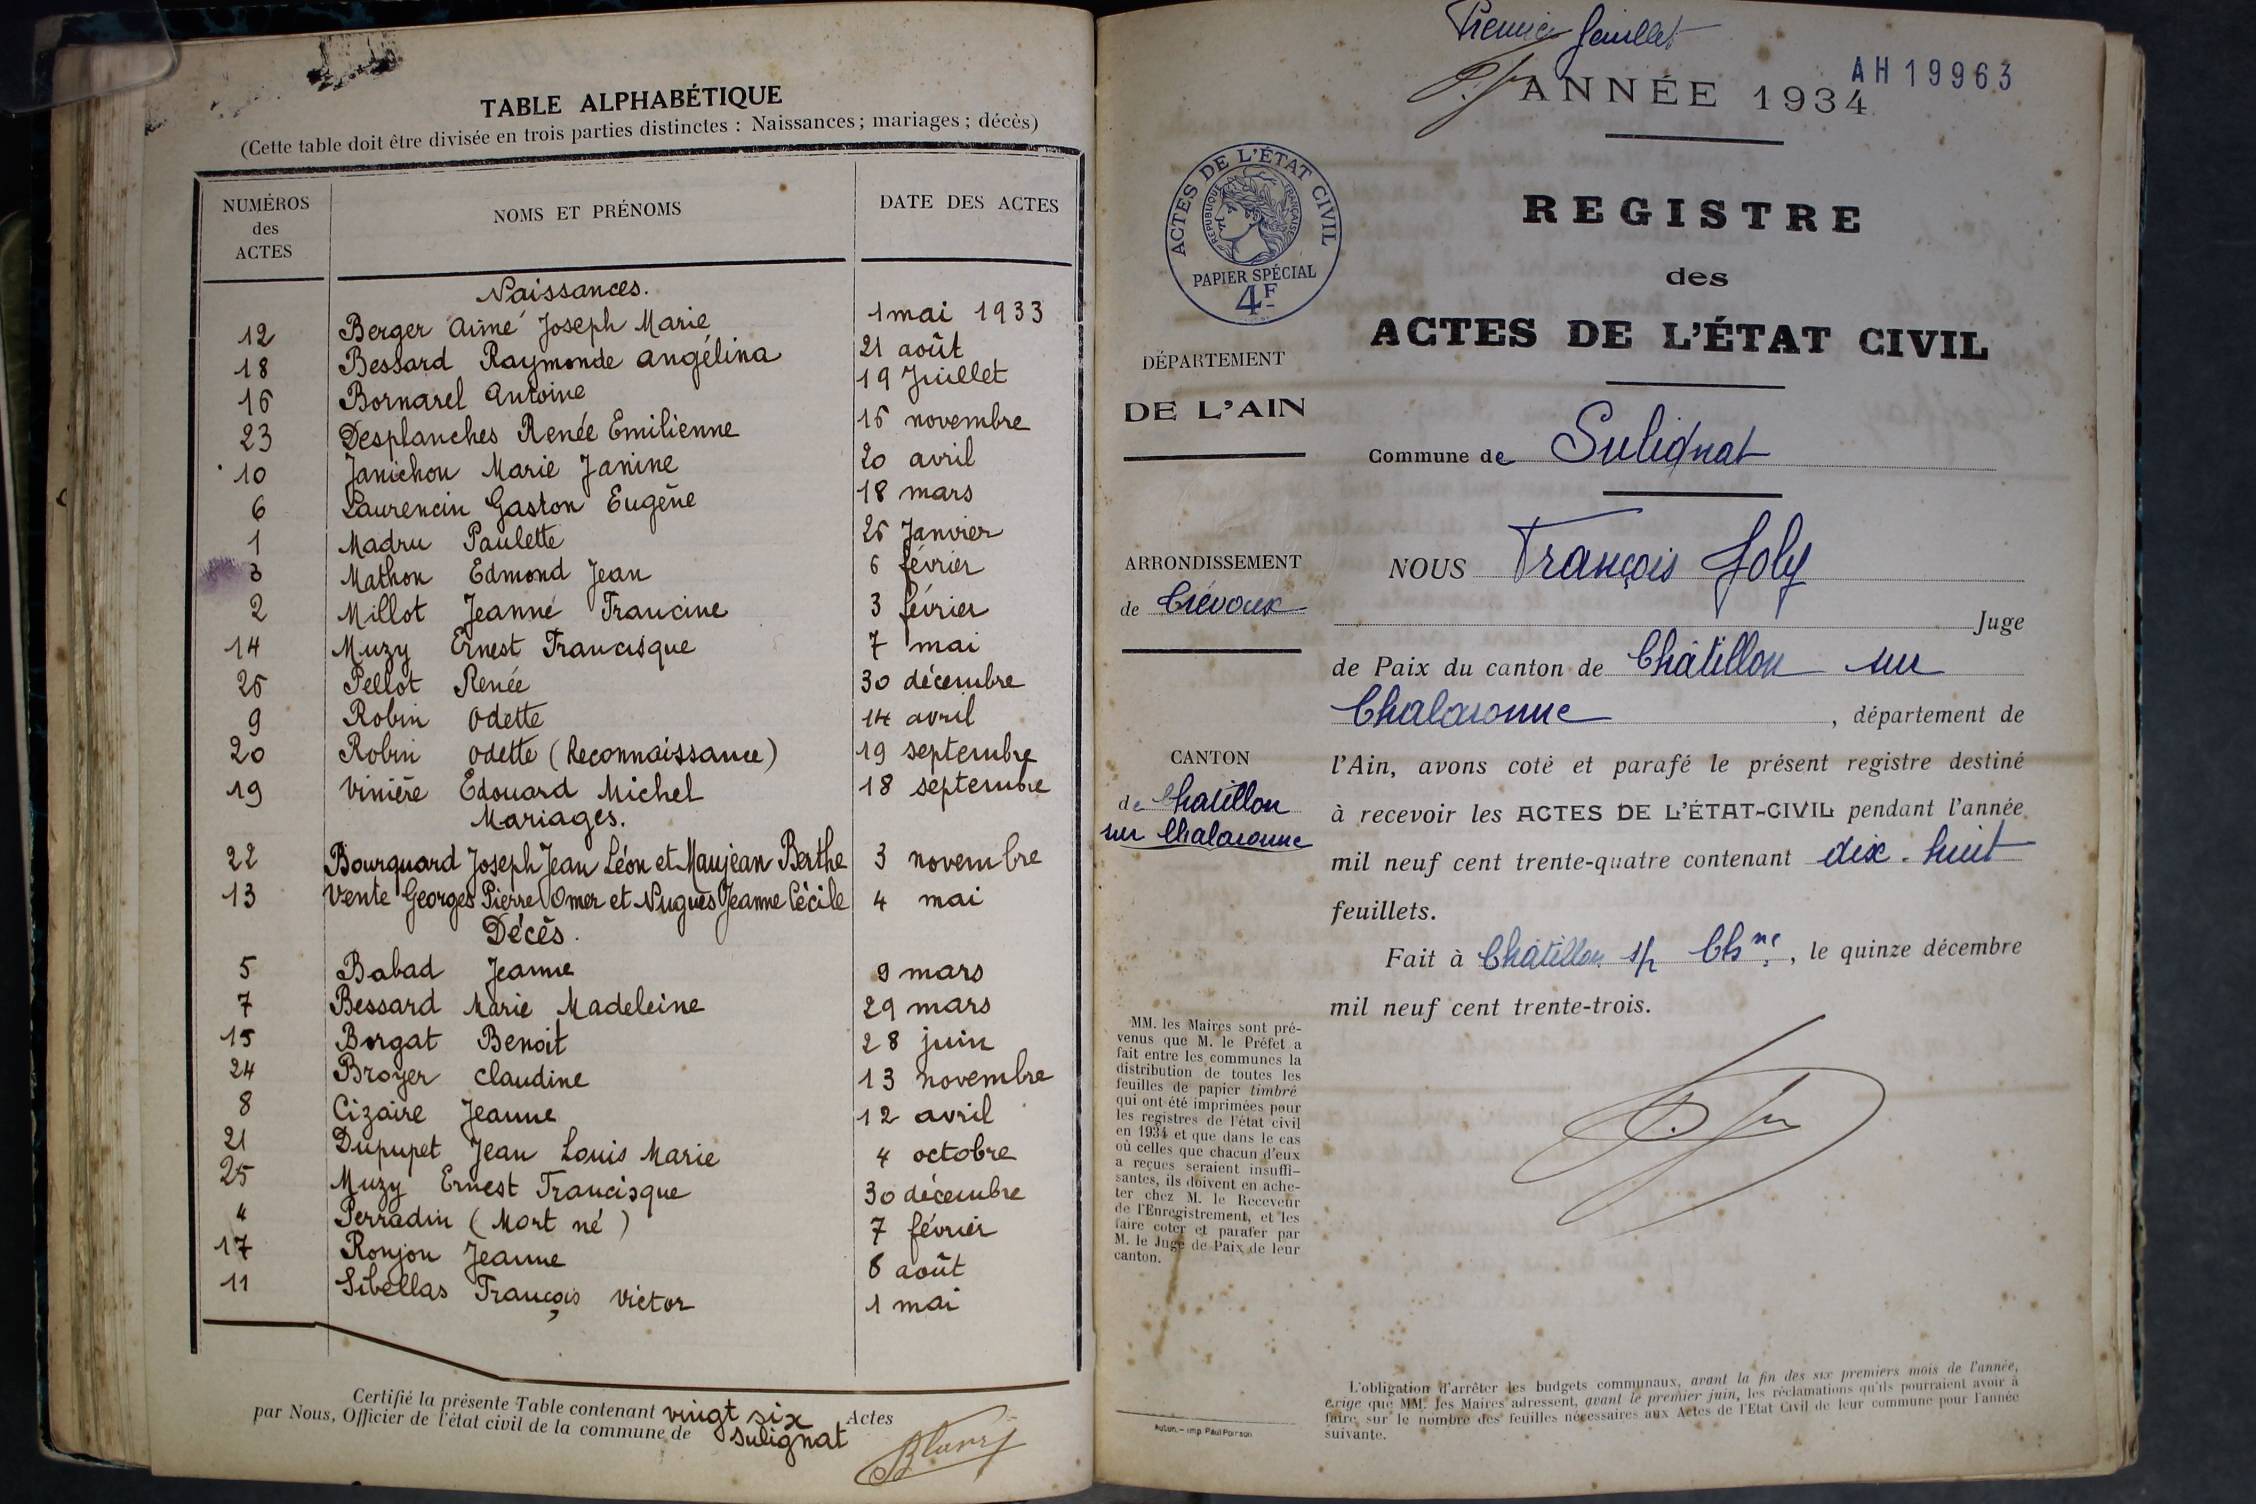 TABLE ALPHABÉTIQUE
(Cette table doit être divisée en trois parties distinctes : Naissances ; mariages ; décès)
NUMÉROS des ACTES NOMS ET PRÉNOMS DATE DES ACTES
Naissances.
12 Berger Aimé Joseph Marie 1 mai 1933
18 Bessard Raymonde Angélina 21 août
16 Bornarel Antoine 19 Juillet
23 Desplanches Renée Emilienne 16 novembre
10 Janichon Marie Janine 20 avril
6 Laurencin Gaston Eugène 18 mars
1 Madru Paulette 26 Janvier
3 Mathon Edmond Jean 6 février
2 Millot Jeanne Francine 3 février
14 Muzy Ernest Francisque 7 mai
26 Pellot Renée 30 décembre
9 Robin Odette 14 avril
20 Robin Odette (Reconnaissance) 19 septembre
19 Vinière Edouard Michel 18 septembre
Mariages.
22 Bourquard Joseph Jean Léon et Maujean Berthe 3 novembre
13 Vente Georges Pierre Omer et Nugues Jeanne Cécile 4 mai
Décès.
5 Babad Jeanne 9 mars
7 Bessard Marie Madeleine 29 mars
15 Borgat Benoit 28 juin
24 Broyer Claudine 13 novembre
8 Cizaire Jeanne 12 avril
21 Dupupet Jean Louis Marie 4 octobre
25 Muzy Ernest Francisque 30 décembre
4 Perradin (Mort né) 7 février
17 Ronjon Jeanne 8 août
11 Sibellas François Victor 1 mai
Certifié la présente Table contenant vingt six Actes
par Nous, Officier de l'état civil de la commune de Sulignat
Premier feuillet
AH19963
ANNÉE 1934
ACTES DE L'ÉTAT CIVIL
RÉPUBLIQUE FRANÇAISE
PAPIER SPÉCIAL
4F
REGISTRE
des
ACTES DE L'ÉTAT CIVIL
DÉPARTEMENT
DE L'AIN
Commune de Sulignat
ARRONDISSEMENT
de Trévoux
CANTON
de Chatillon
sur Chalaronne
NOUS François Joly
Juge
de Paix du canton de Châtillon sur
Chalaronne, département de
l'Ain, avons coté et parafé le présent registre destiné
à recevoir les ACTES DE L'ÉTAT-CIVIL pendant l'année
mil neuf cent trente-quatre contenant dix-huit
feuillets.
Fait à Châtillon s/ Chne, le quinze décembre
mil neuf cent trente-trois.
MM. les Maires sont pré-
venus que M. le Préfet a
fait entre les communes la
distribution de toutes les
feuilles de papier timbré
qui ont été imprimées pour
les registres de l'état civil
en 1934 et que dans le cas
où celles que chacun d'eux
a reçues seraient insuffi-
santes, ils doivent en ache-
ter chez M. le Receveur
de l'Enregistrement, et les
faire coter et parafer par
M. le Juge de Paix de leur
canton.
Autun.— imp. Paul Poirson
L'obligation d'arrêter les budgets communaux, avant la fin des six premiers mois de l'année,
exige que MM. les Maires adressent, avant le premier juin, les réclamations qu'ils pourraient avoir à
faire sur le nombre des feuilles nécessaires aux Actes de l'Etat Civil de leur commune pour l'année
suivante.